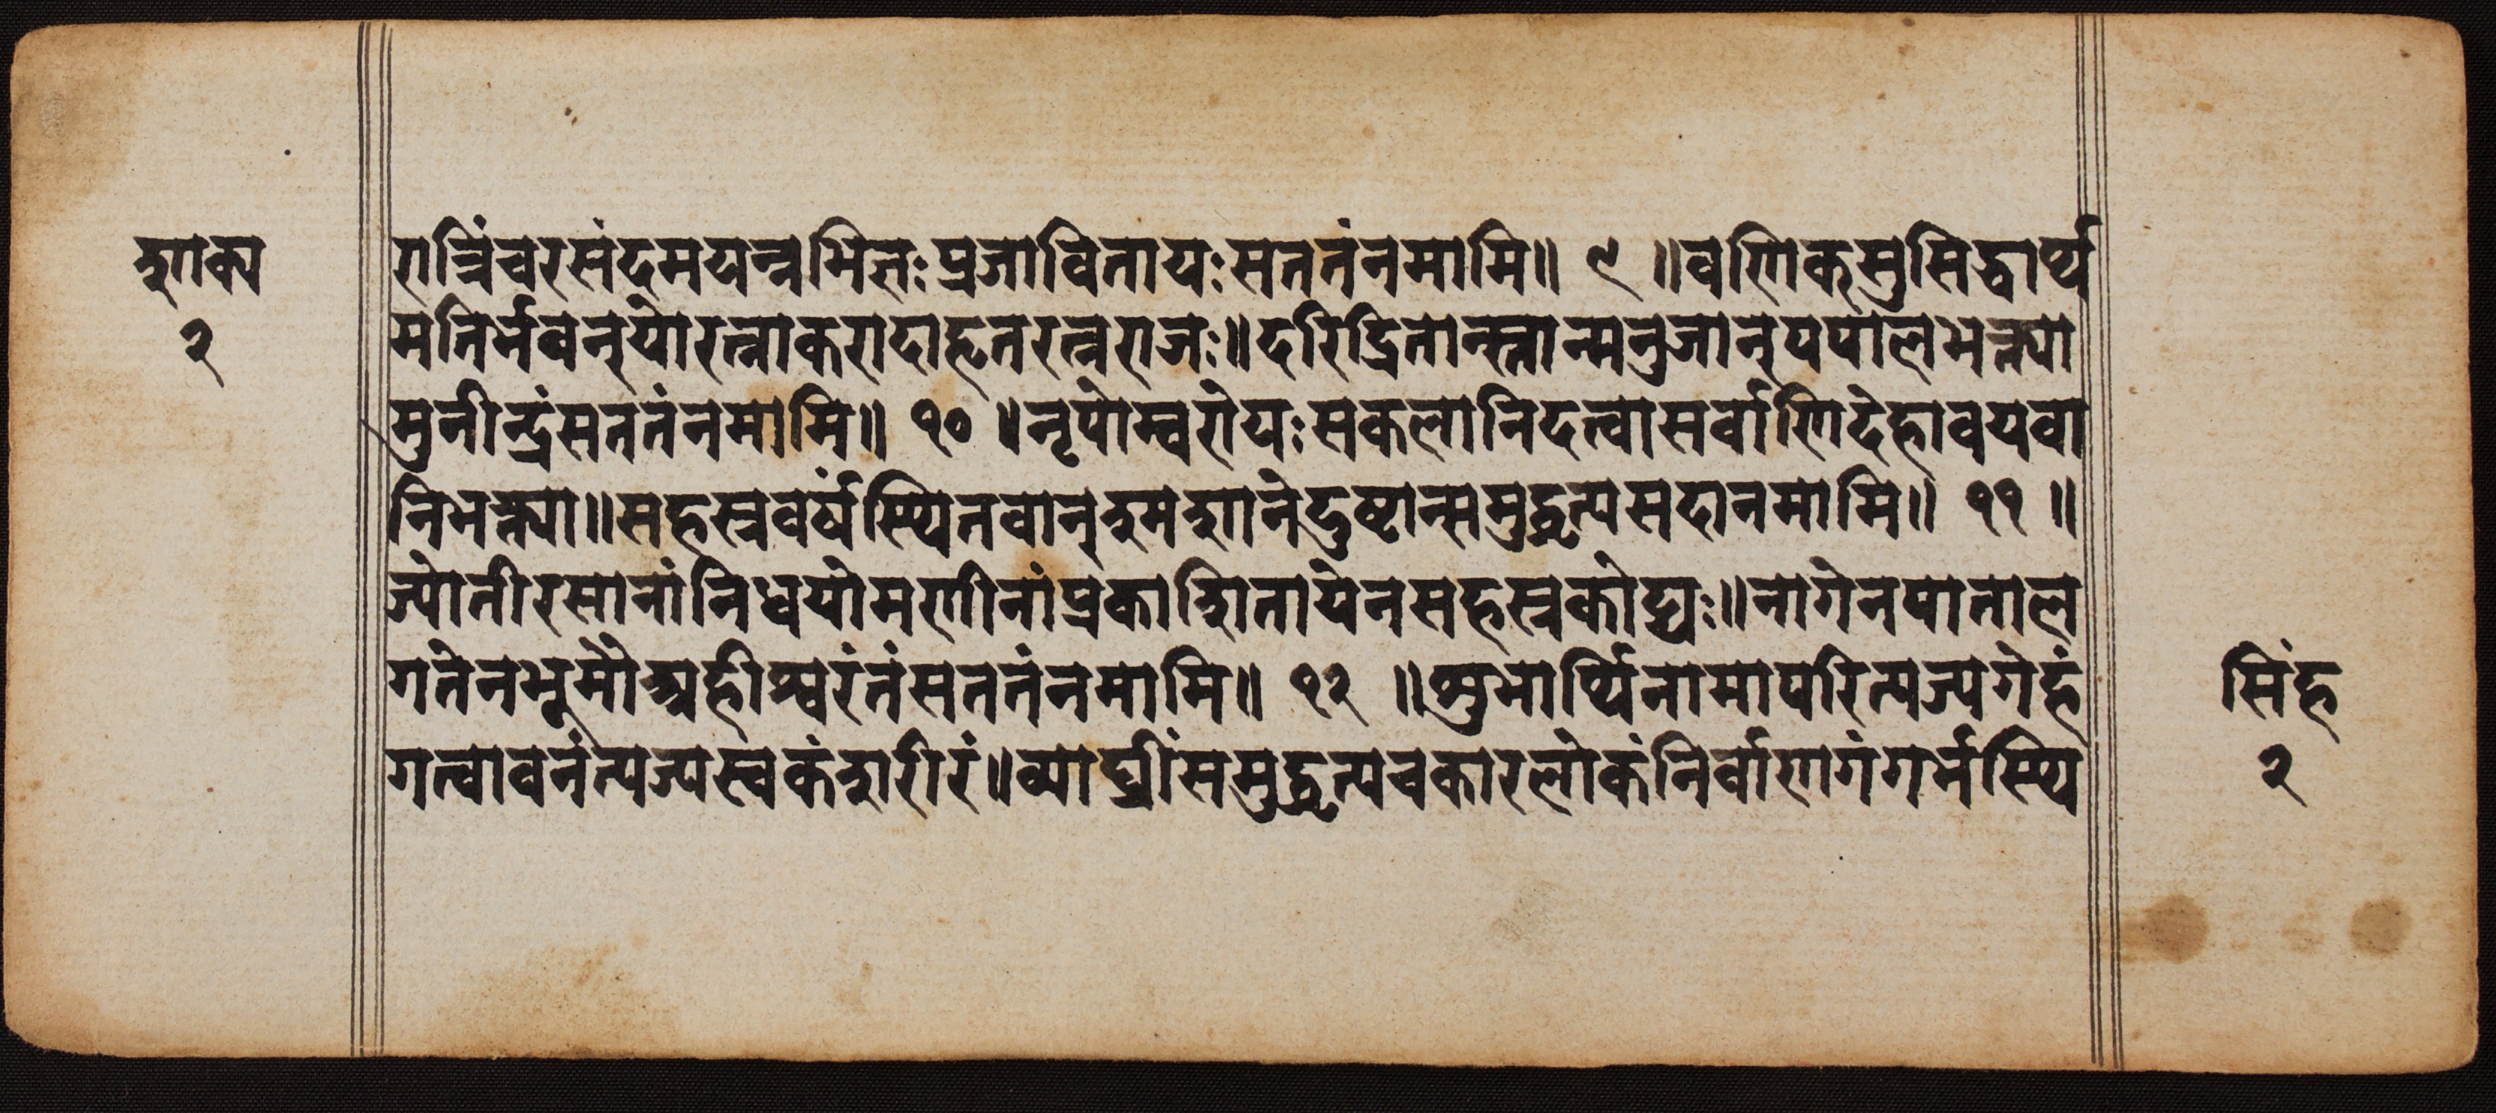 शाक्य
२
रात्रिंचरसंदमयन्नभिज्ञःप्रजावितायःसततंनमामि॥ ९ ॥वणिक्सुसिद्धार्थ
मतिर्भवन्योरत्नाकरादाहृतरत्नराजः॥दरिद्रितान्स्तान्मनुजान्पपालभक्त्या
मुनीन्द्रंसततंनमामि॥ १० ॥नृपोम्वरोयःसकलानिदत्वासर्वाणिदेहावयवा
निभक्त्या॥सहस्रवर्षंस्थितवान्श्मशानेदुष्टान्समुद्धृत्यसदानमामि॥ ११ ॥
ज्योतीरसानांनिधयोमणीनांप्रकाशितायेनसहस्रकोट्यः॥नागेनपाताल
गतेनभूमौअहीश्वरंतंसततंनमामि॥ १२ ॥शुभार्थिनामापरित्यज्यगेहं
गत्वावनंत्यज्यस्वकंशरीरं॥व्याघ्रींसमुद्धृत्यचकारलोकंनिर्वाणगंगर्भस्थि
सिंह
२